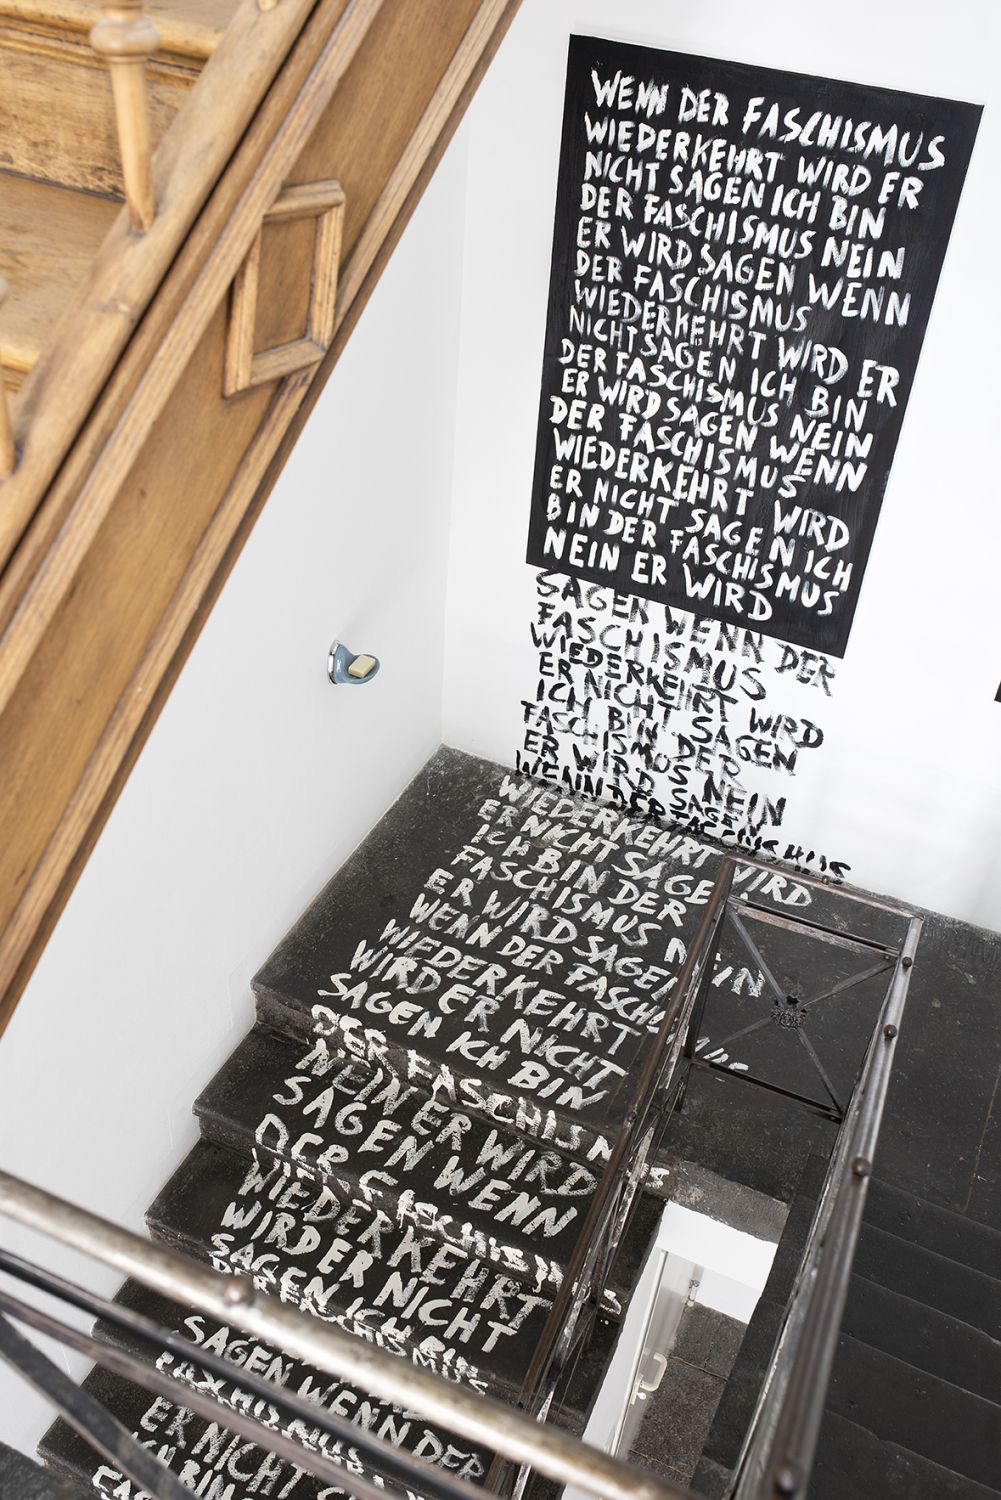 WENN DER FASCHISMUS
WIEDERKEHRT WIRD ER
NICHT SAGEN ICH BIN
DER FASCHISMUS NEIN
ER WIRD SAGEN WENN
DER FASCHISMUS
WIEDERKEHRT WIRD ER
NICHT SAGEN ICH BIN
DER FASCHISMUS NEIN
ER WIRD SAGEN WENN
DER FASCHISMUS
WIEDERKEHRT WIRD
ER NICHT SAGEN ICH
BIN DER FASCHISMUS
NEIN ER WIRD
SAGEN WENN DER
FASCHISMUS
WIEDERKEHRT WIRD
ER NICHT SAGEN
ICH BIN DER
FASCHISMUS NEIN
ER WIRD SAGEN
WENN DER FASCHISMUS
WIEDERKEHRT WIRD
ER NICHT SAGEN
ICH BIN DER
FASCHISMUS NEIN
ER WIRD SAGEN
WENN DER FASCHISMUS
WIEDERKEHRT
WIRD ER NICHT
SAGEN ICH BIN
DER FASCHISMUS
NEIN ER WIRD
SAGEN WENN
DER FASCHISMUS
WIEDERKEHRT
WIRD ER NICHT
SAGEN ICH BIN
DER FASCHISMUS
SAGEN WENN DER
FASCHISMUS
ER NICHT
ICH BIN